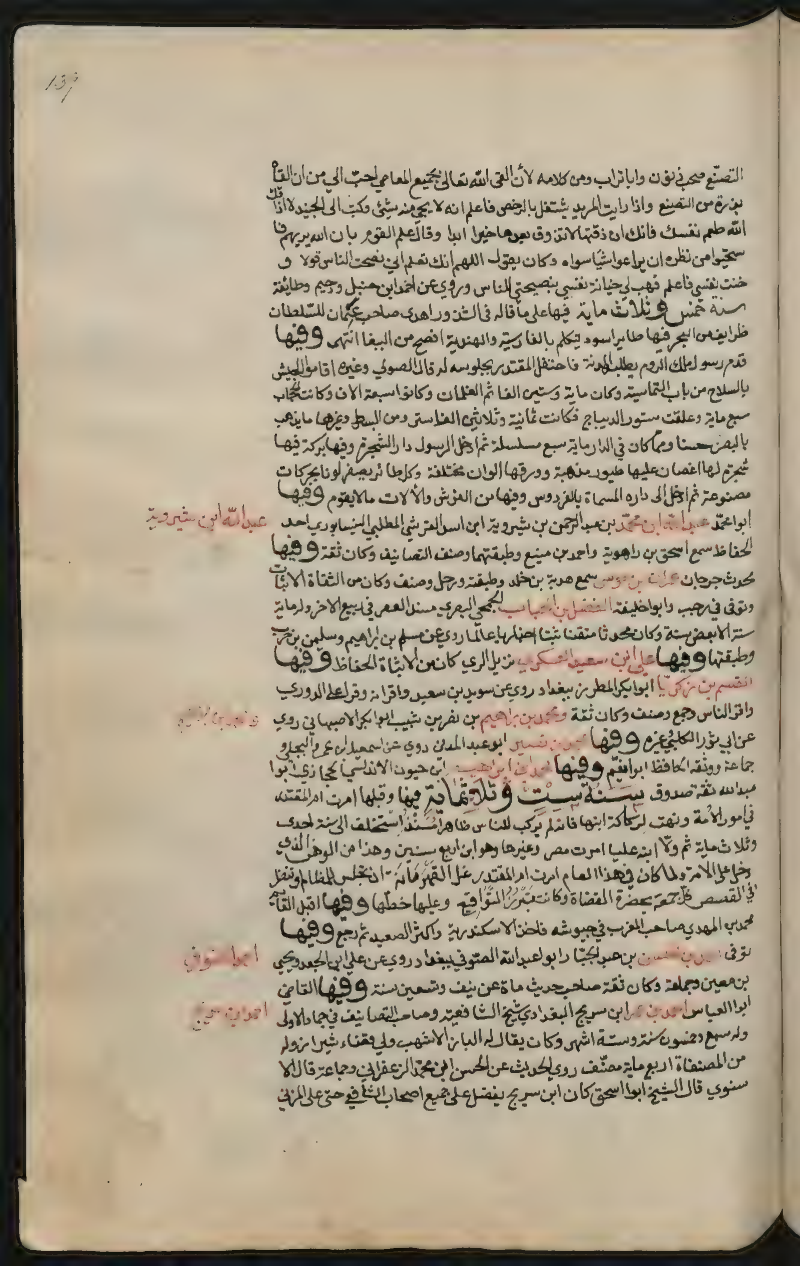 139
التصنّع صحب ذي نون وابا تراب ومن كلامه لأن القى الله تعالى بجميع المعاصي احبّ الي من ان القاه
بذرة من التصنع واذا رايت المريد يشتغل بالرخص فاعلم انه لا يجي منه شيئ وكتب الى الجنيد لا اذاقك
الله طعم نفسك فانك ان ذقتها لا تذوق بعدها خيرا ابدا وقال علم القوم بان الله يريهم فا
ستحيوا من نظره ان يراعوا شيأ سواه وكان يقول اللهم انك تعلم اني نصحت الناس قولا و
خنت نفسي فاعلم فهب لي خيانة نفسي بنصيحتي للناس وروي عن احمد ابن حنبل ودحيم وطائفة
سنة خمس وثلاث ماية فيها على ما قاله في الشذور اهدى صاحب عمان للسلطان
ظرايف من البحر فيها طاير اسود يتكلم بالفارسية والهندية افصح من الببغا انتهى وفيها
قدم رسول ملك الروم يطلب الهدنة فاحتفل المقتدر بجلوسه له قال الصولي وغيره اقاموا الجيش
بالسلاح من باب الشماسية وكان ماية وستين الفا ثم الغلمان وكانوا سبعة الاف وكانت الحجاب
سبع ماية وعلقت ستور الديباج فكانت ثمانية وثلاثين الف ستر ومن البسط وغيرها ما يذهب
بالبصر حسنا ومما كان في الدار ماية سبع مسلسلة ثم ادخل الرسول دار الشجرة وفيها بركة فيها
شجرة لها اغصان عليها طيور مذهبة وورقها الوان مختلفة وكل طاير يصفر لونا بحركات
مصنوعة ثم ادخل الى داره المسماة بالفردوس وفيها من الفرش والآلات ما لا يقوم وفيها
ابوا محمد عبد الله ابن محمد بن عبد الرحمن بن شيروية ابن اسد القرشي المطلبي النيسابوري احد
عبد الله ابن شيروية
الحفاظ سمع اسحق بن راهوية واحمد بن منيع وطبقتهما وصنف التصانيف وكان ثقة وفيها
محدث جرجان عمران بن موسى سمع هدبة بن خلد وطبقته ورحل وصنف وكان من الثقاة الاثبات
وتوفى في رجب وابوا خليفة الفضل بن الحباب الجمحي البصري مسند العصر في ربيع الاخر وله ماية
سنة الا بعض سنة وكان محدثا متقنا ثبتا اخباريا عالما روى عن مسلم بن ابراهيم وسليمن بن حرب
وطبقتهما وفيها علي ابن سعيد العسكري نزيل الري كان من الاثباة الحفاظ وفيها
القسم بن زكريا ابوا بكر المطرز ببغداد روى عن سويد بن سعيد واقرانه وقرا على الدوري
واقر الناس وجمع وصنف وكان ثقة ومحمد بن ابراهيم بن نصر بن شبيب ابوا بكر الاصبهاني روى
عن ابي ثور الكلبي وغيره وفيها محمد بن نصير ابو عبد الله المدني روى عن اسمعيل ابن عمرو البجلي و
جماعة ووثقه الحافظ ابو انعيم وفيها محمد ابن ابراهيم ابن حيون الاندلسي الحجازي ابوا
عبد الله ثقة صدوق سنة ست وثلاثماية فيها وقبلها امرت ام المقتدر
في امور الامة ونهت لركاكة ابنها فانه لم يركب للناس ظاهرا منذ استخلف الى سنة احدى
وثلاث ماية ثم ولا ابنه عليا امرت مصر وغيرها وهو ابن اربع سنين وهذا من الوهن الذي
دخل على الامة ولما كان في هذا العام امرت ام المقتدر ثمل القهرمانة ان تجلس للمظالم وتنظر
في القصص كل جمعة بحضرة القضاة وكانت تبرز التواقيع وعليها خطها وفيها اقبل القايم
محمد بن المهدي صاحب المغرب في جيوشه فاخذ الاسكندرية واكثر الصعيد ثم رجع وفيها
توفى احمد بن الحسن بن عبد الجبار ابوا عبد الله الصوفي ببغداد روى عن علي ابن الجعد ويحيى
احمد الصوفي
بن معين وجماعة وكان ثقة صاحب حديث مات عن نيف وتسعين سنة وفيها القاضي
ابوا العباس احمد بن عمر ابن سريج البغدادي شيخ الشافعية وصاحب التصانيف في جماد الاولى
احمد ابن سريج
وله سبع وخمسون سنة وستة اشهر وكان يقال له الباز الاشهب ولي قضاء شيراز وله
من المصنفاة اربع ماية مصنّف روى الحديث عن الحسن ابن محمد الزعفراني وجماعة قال الا
سنوي قال الشيخ ابوا اسحق كان ابن سريج يفضل على جميع اصحاب الشافعي حتى على المزني